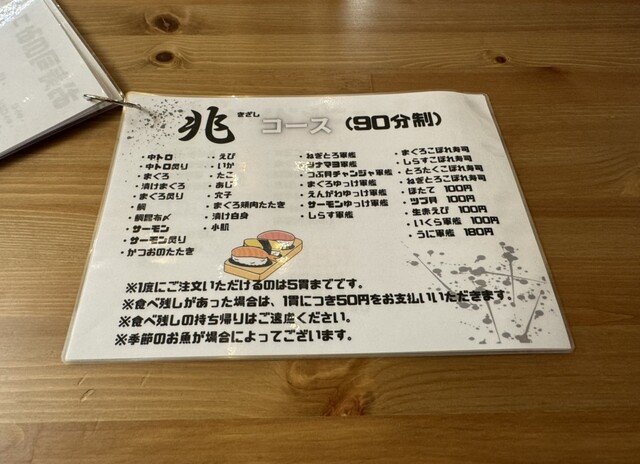 兆 きざし コース (90分制)
・中トロ
・中トロ炙り
・まぐろ
・漬けまぐろ
・まぐろ炙り
・鯛
・鯛昆布〆
・サーモン
・サーモン炙り
・かつおのたたき
・えび
・いか
・たこ
・あじ
・穴子
・まぐろ頬肉たたき
・漬け白身
・小肌
・ねぎとろ軍艦
・シナマヨ軍艦
・つぶ貝チャンジャ軍艦
・まぐろゆっけ軍艦
・えんがわゆっけ軍艦
・サーモンゆっけ軍艦
・しらす軍艦
・まぐろこぼれ寿司
・しらすこぼれ寿司
・とろたくこぼれ寿司
・ねぎとろこぼれ寿司
・ほたて 100円
・ツブ貝 100円
・生赤えび 100円
・いくら軍艦 100円
・うに軍艦 180円
※1度にご注文いただけるのは5貫までです。
※食べ残しがあった場合は、1貫につき50円をお支払いいただきます。
※食べ残しの持ち帰りはご遠慮ください。
※季節のお魚が場合によってございます。